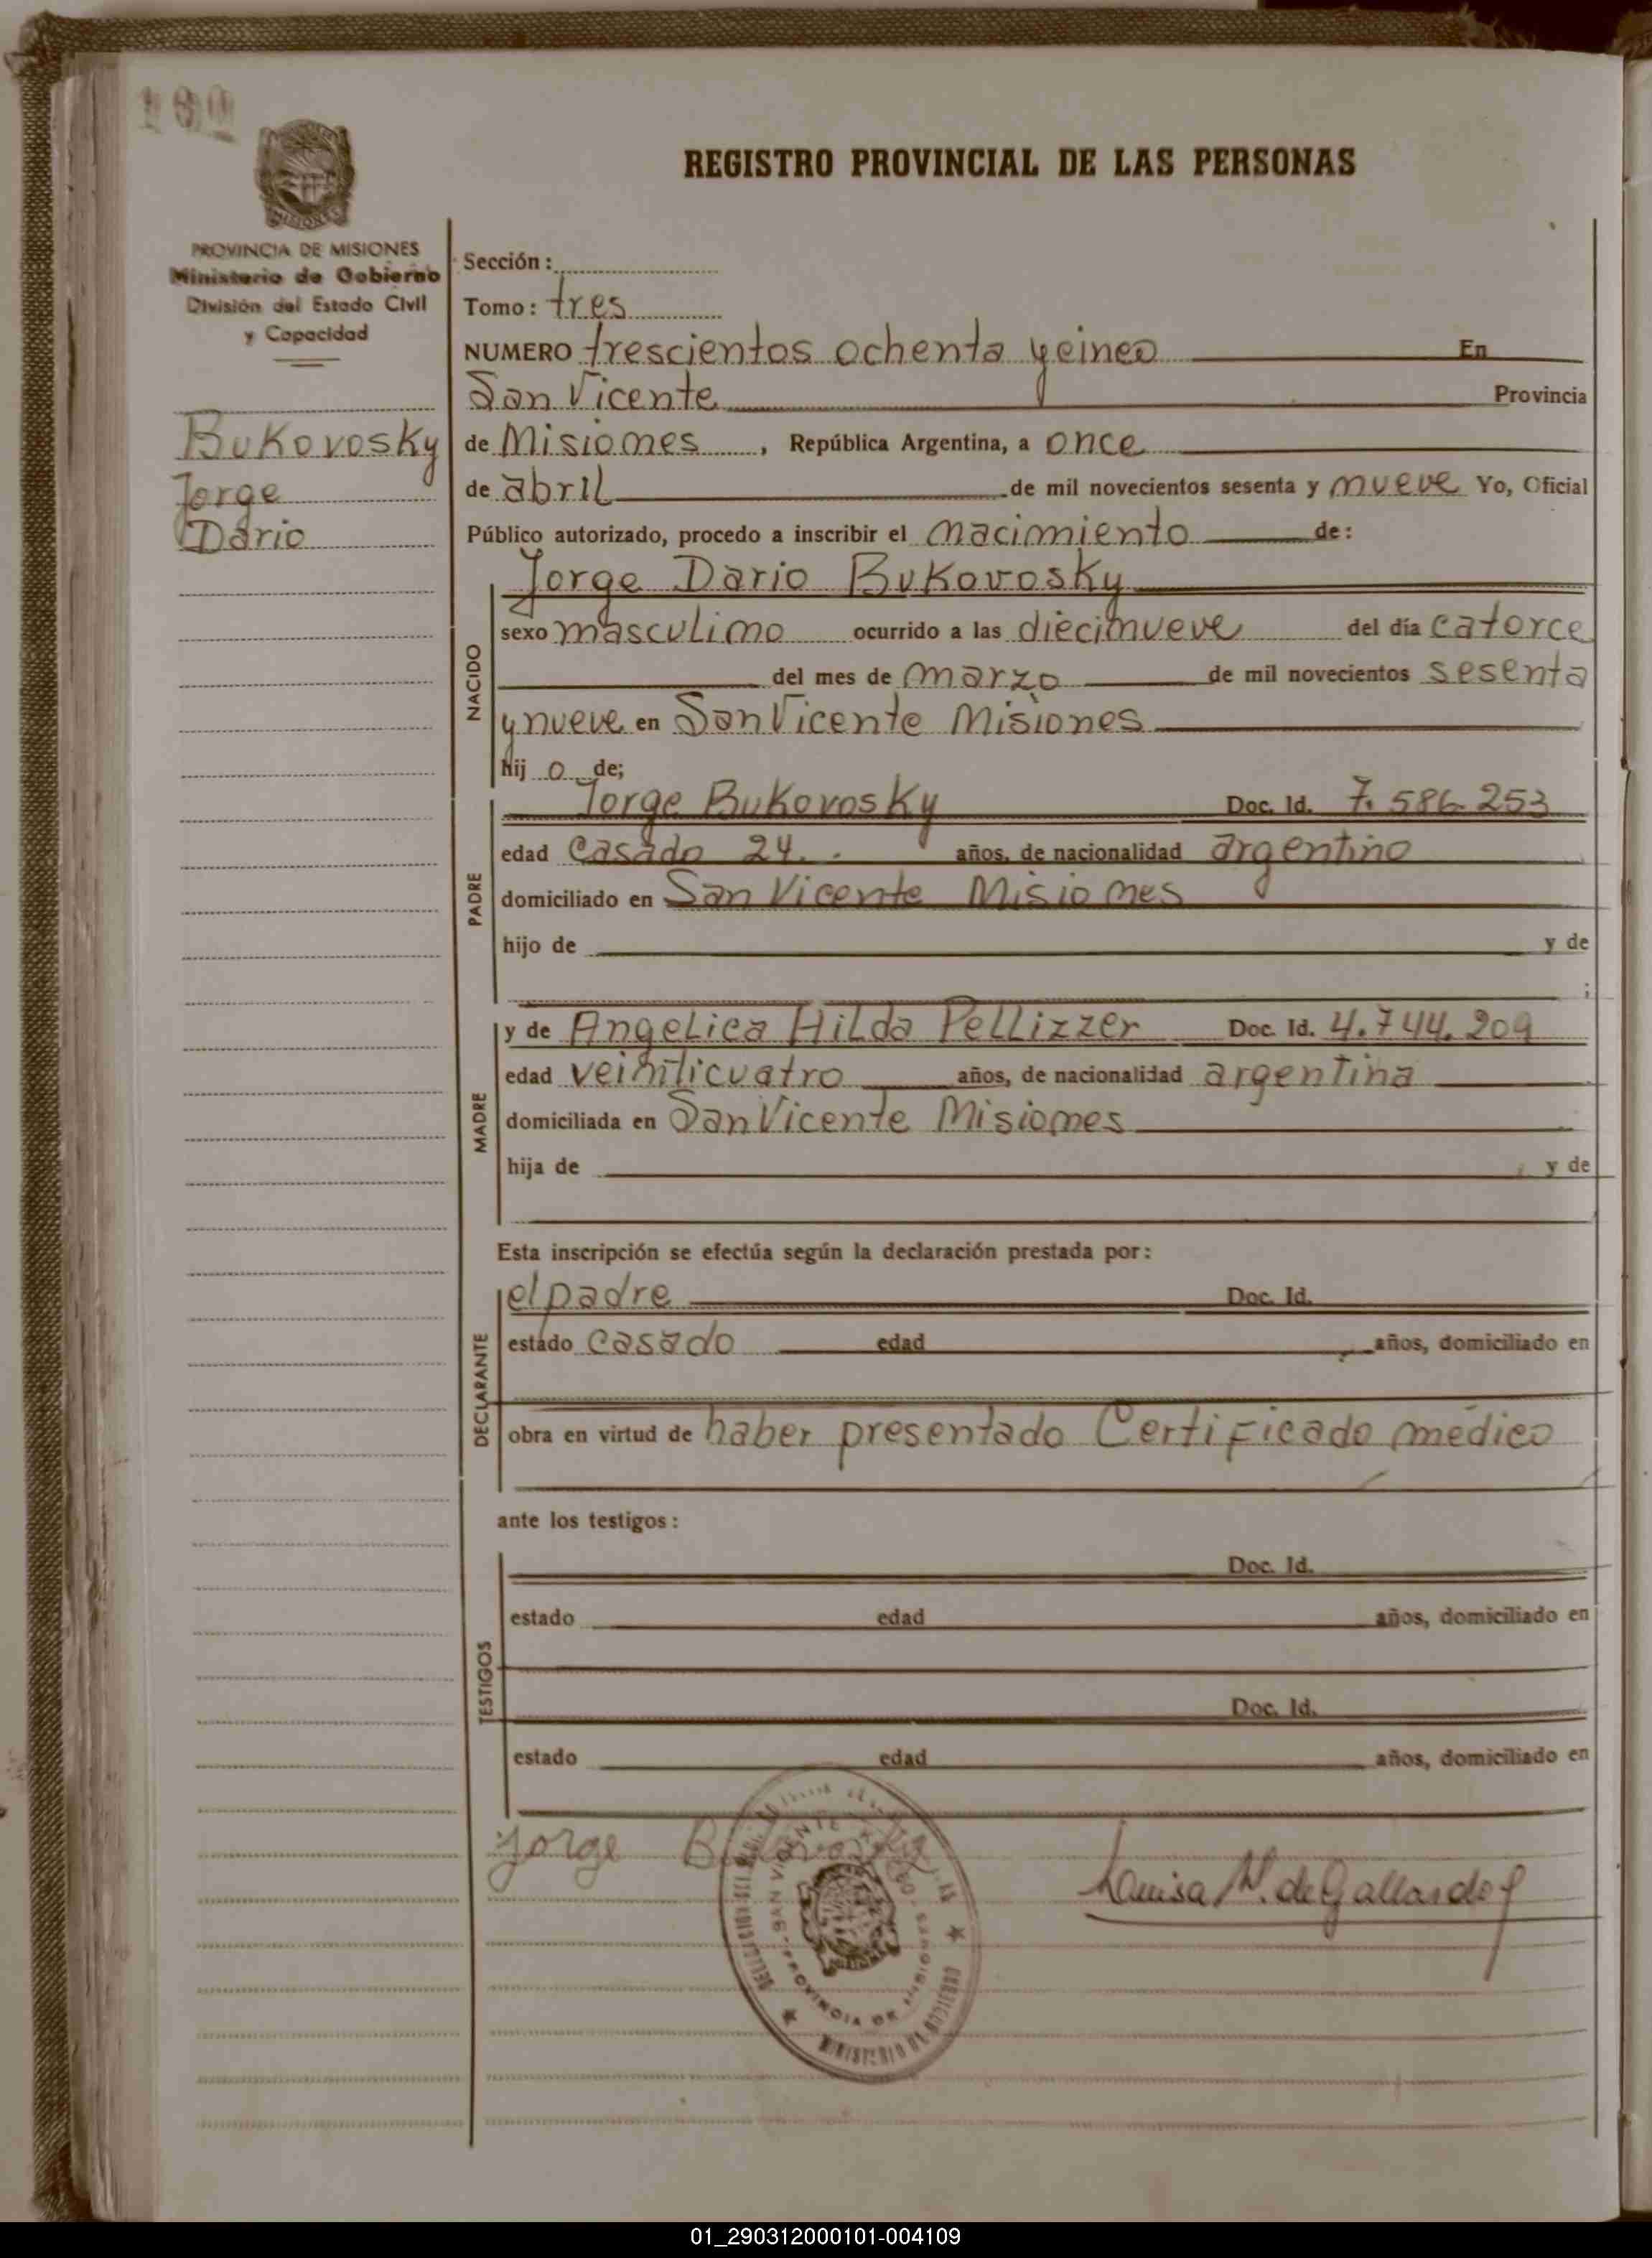 190
PROVINCIA DE MISIONES
Ministerio de Gobierno
División del Estado Civil
y Capacidad
Bukovosky
Jorge
Dario
REGISTRO PROVINCIAL DE LAS PERSONAS
Sección:
Tomo: tres
NUMERO trescientos ochenta y cinco En
San Vicente Provincia
de Misiones, República Argentina, a once
de abril de mil novecientos sesenta y nueve Yo, Oficial
Público autorizado, procedo a inscribir el nacimiento de:
Jorge Dario Bukovosky
NACIDO
sexo masculino ocurrido a las diecinueve del día catorce
del mes de marzo de mil novecientos sesenta
y nueve en San Vicente Misiones
hijo de;
PADRE
Jorge Bukovosky Doc. Id. 7.586.253
edad casado 24. años, de nacionalidad argentino
domiciliado en San Vicente Misiones
hijo de y de
;
MADRE
y de Angelica Hilda Pellizzer Doc. Id. 4.744.209
edad veinticuatro años, de nacionalidad argentina
domiciliada en San Vicente Misiones
hija de y de
Esta inscripción se efectúa según la declaración prestada por:
DECLARANTE
el padre Doc. Id.
estado casado edad años, domiciliado en
obra en virtud de haber presentado Certificado médico
ante los testigos:
TESTIGOS
Doc. Id.
estado edad años, domiciliado en
Doc. Id.
estado edad años, domiciliado en
Jorge Bukovosky
SAN VICENTE
PROVINCIA DE MISIONES
MINISTERIO DE GOBIERNO
Louisa N. de Gallardo
01_290312000101-004109